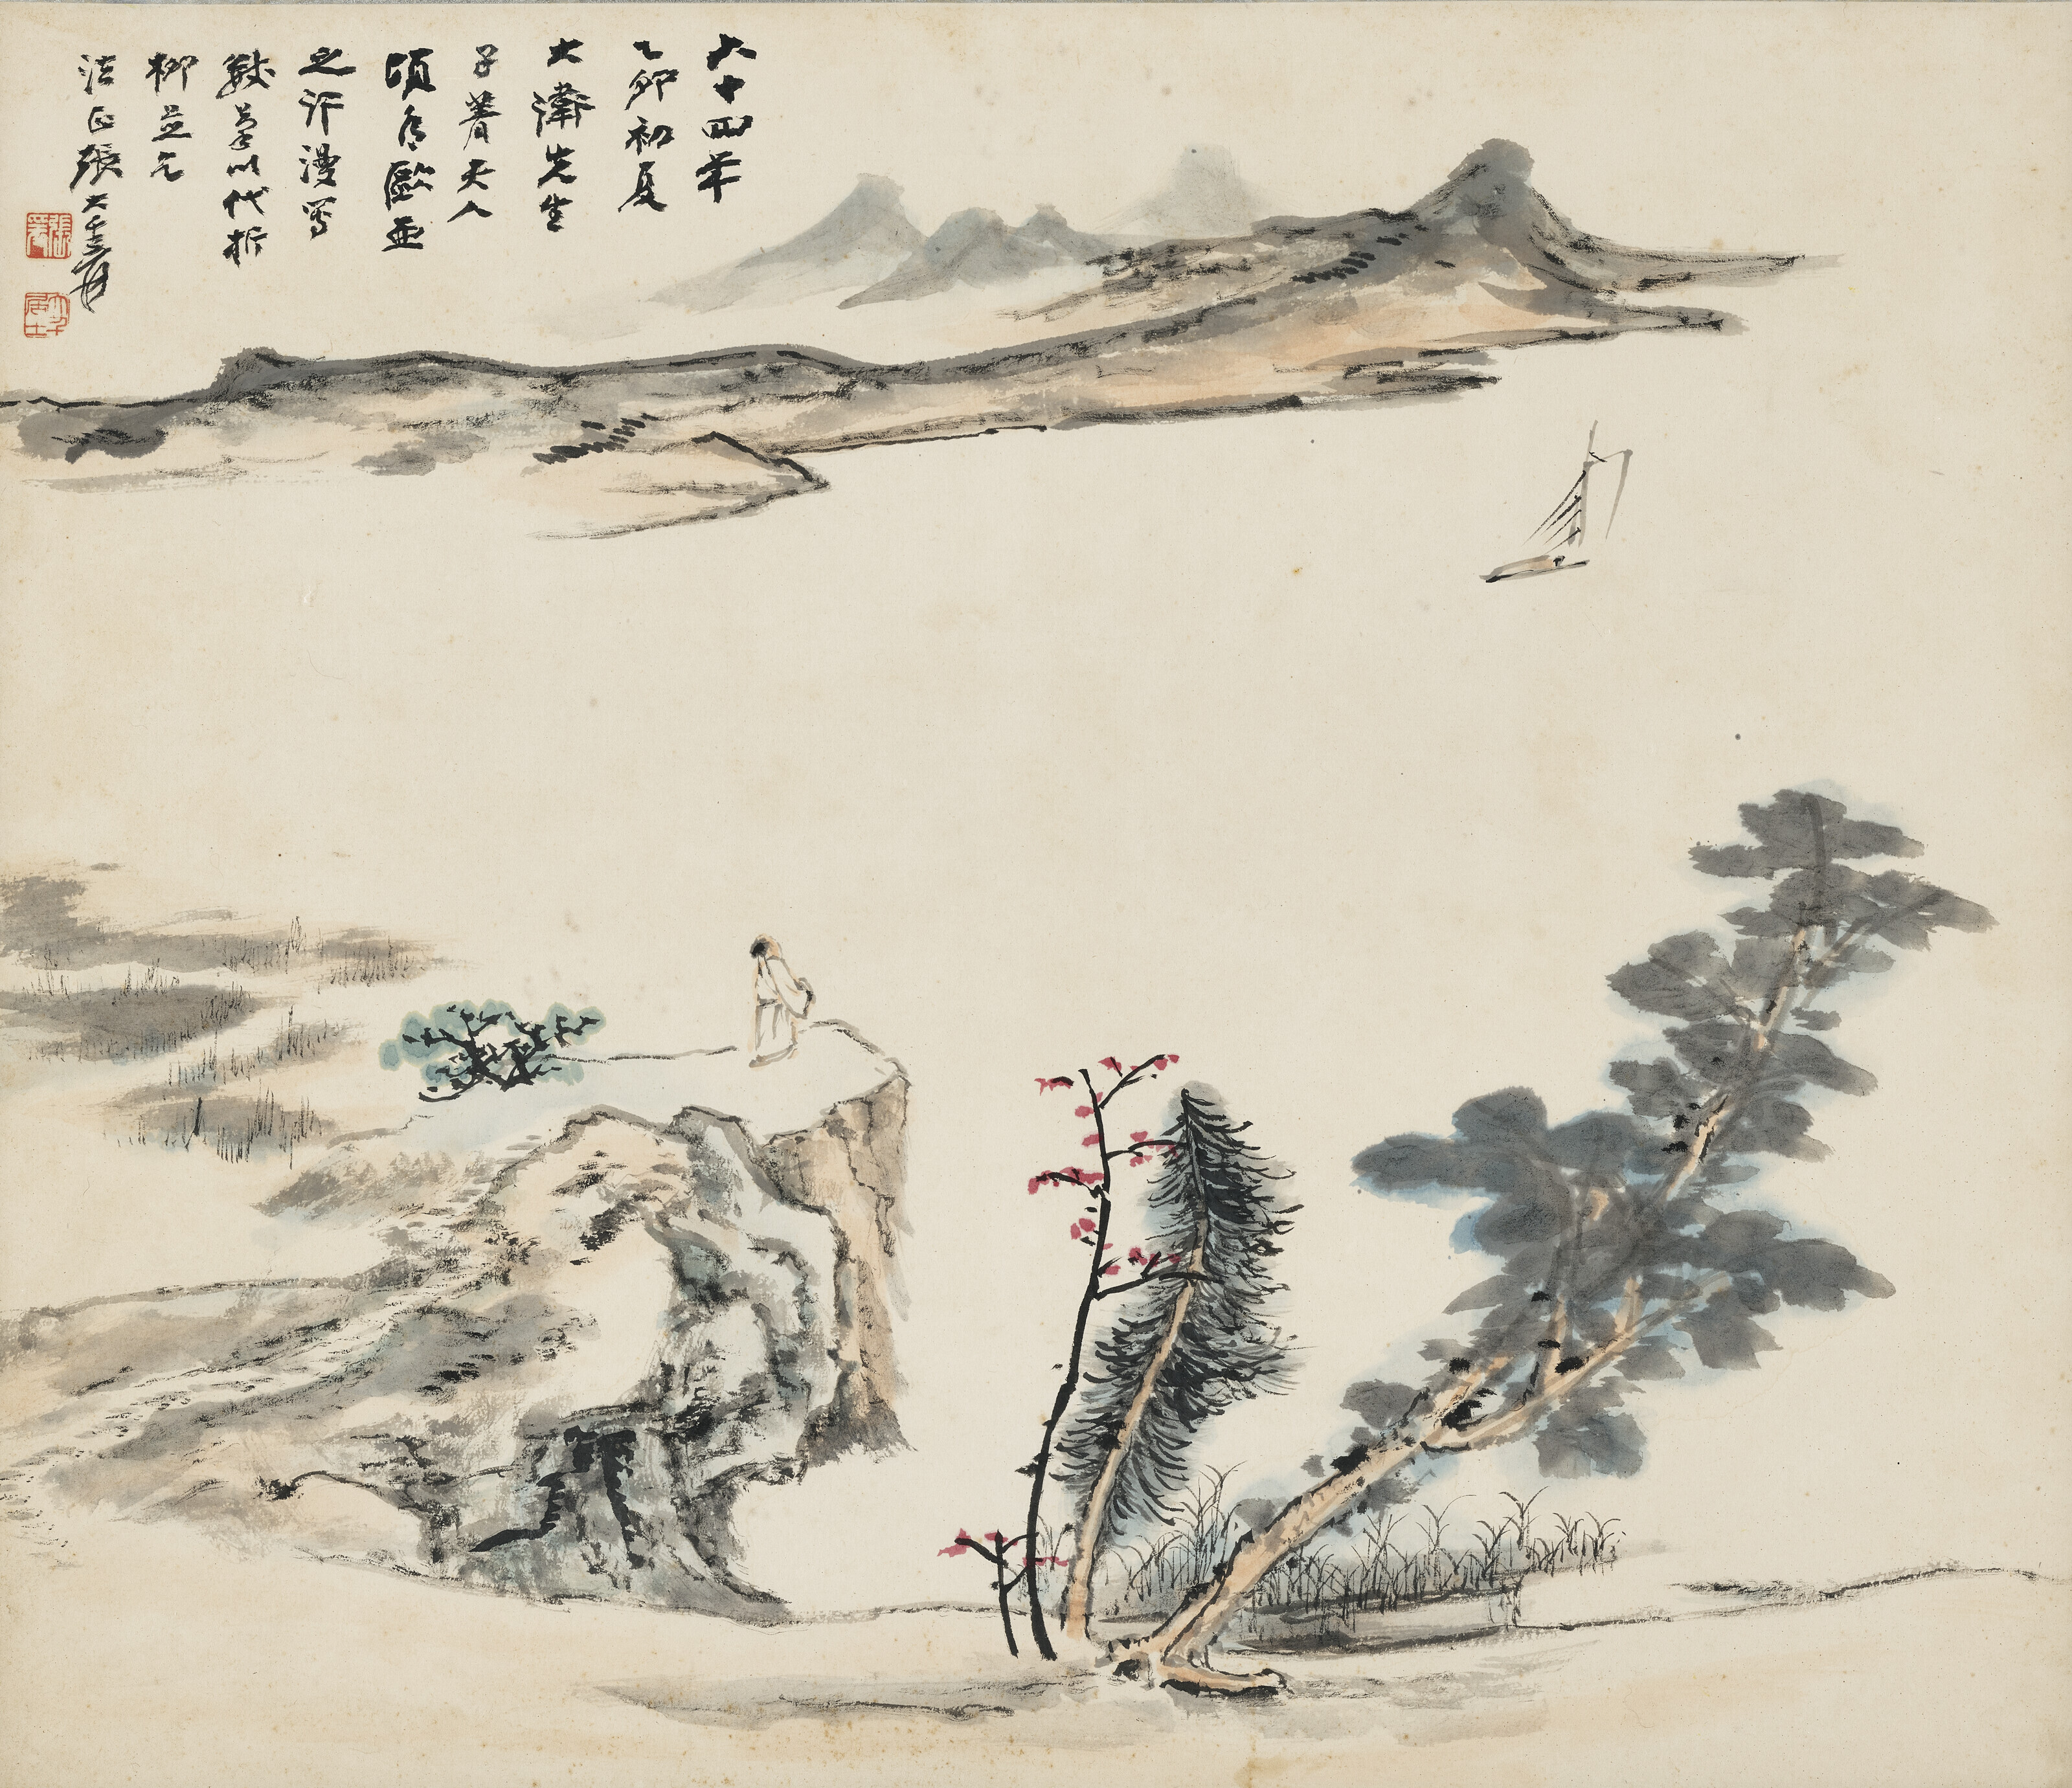 六十四年
乙卯初夏
大衛先生
子菁夫人
頃有歐亞
之行漫寫
數筆以代折
柳並乞
法正張大千爰
張爰
大千居士